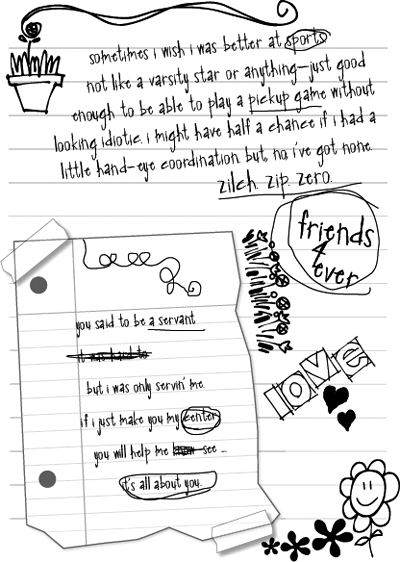 sometimes i wish i was better at sports
not like a varsity star or anything—just good
enough to be able to play a pickup game without
looking idiotic. i might have half a chance if i had a
little hand-eye coordination but, no. i've got none.
zilch. zip. zero.
friends
4
ever
you said to be a servant
it was hard to
but i was only servin' me.
if i just make you my center
you will help me see...
it's all about you.
LOVE